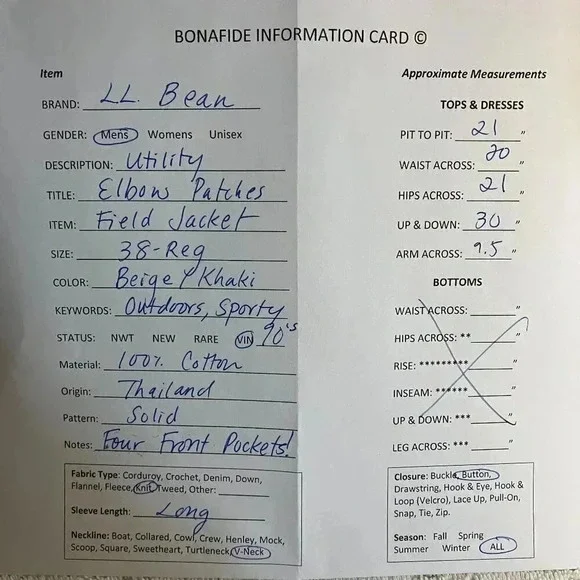 BONAFIDE INFORMATION CARD ©
Item
BRAND: LL. Bean
GENDER: Mens Womens Unisex
DESCRIPTION: Utility
TITLE: Elbow Patches
ITEM: Field Jacket
SIZE: 38-Reg
COLOR: Beige / Khaki
KEYWORDS: Outdoors, Sporty
STATUS: NWT NEW RARE VIN 90's
Material: 100% Cotton
Origin: Thailand
Pattern: Solid
Notes: Four Front Pockets!
Fabric Type: Corduroy, Crochet, Denim, Down,
Flannel, Fleece, Knit, Tweed, Other:
Sleeve Length: Long
Neckline: Boat, Collared, Cowl, Crew, Henley, Mock,
Scoop, Square, Sweetheart, Turtleneck, V-Neck
Approximate Measurements
TOPS & DRESSES
PIT TO PIT: 21 "
WAIST ACROSS: 20 "
HIPS ACROSS: 21 "
UP & DOWN: 30 "
ARM ACROSS: 9.5 "
BOTTOMS
WAIST ACROSS: "
HIPS ACROSS: ** "
RISE: ******** "
INSEAM: ****** "
UP & DOWN: *** "
LEG ACROSS: *** "
Closure: Buckle, Button,
Drawstring, Hook & Eye, Hook &
Loop (Velcro), Lace Up, Pull-On,
Snap, Tie, Zip.
Season: Fall Spring
Summer Winter ALL